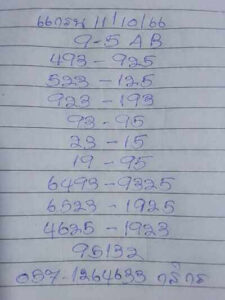 11/10/66
9-5 A B
493 - 925
523 - 125
923 - 193
93 - 95
23 - 15
19 - 95
6493 - 9325
6523 - 1925
4625 - 1923
95132
057-1264633